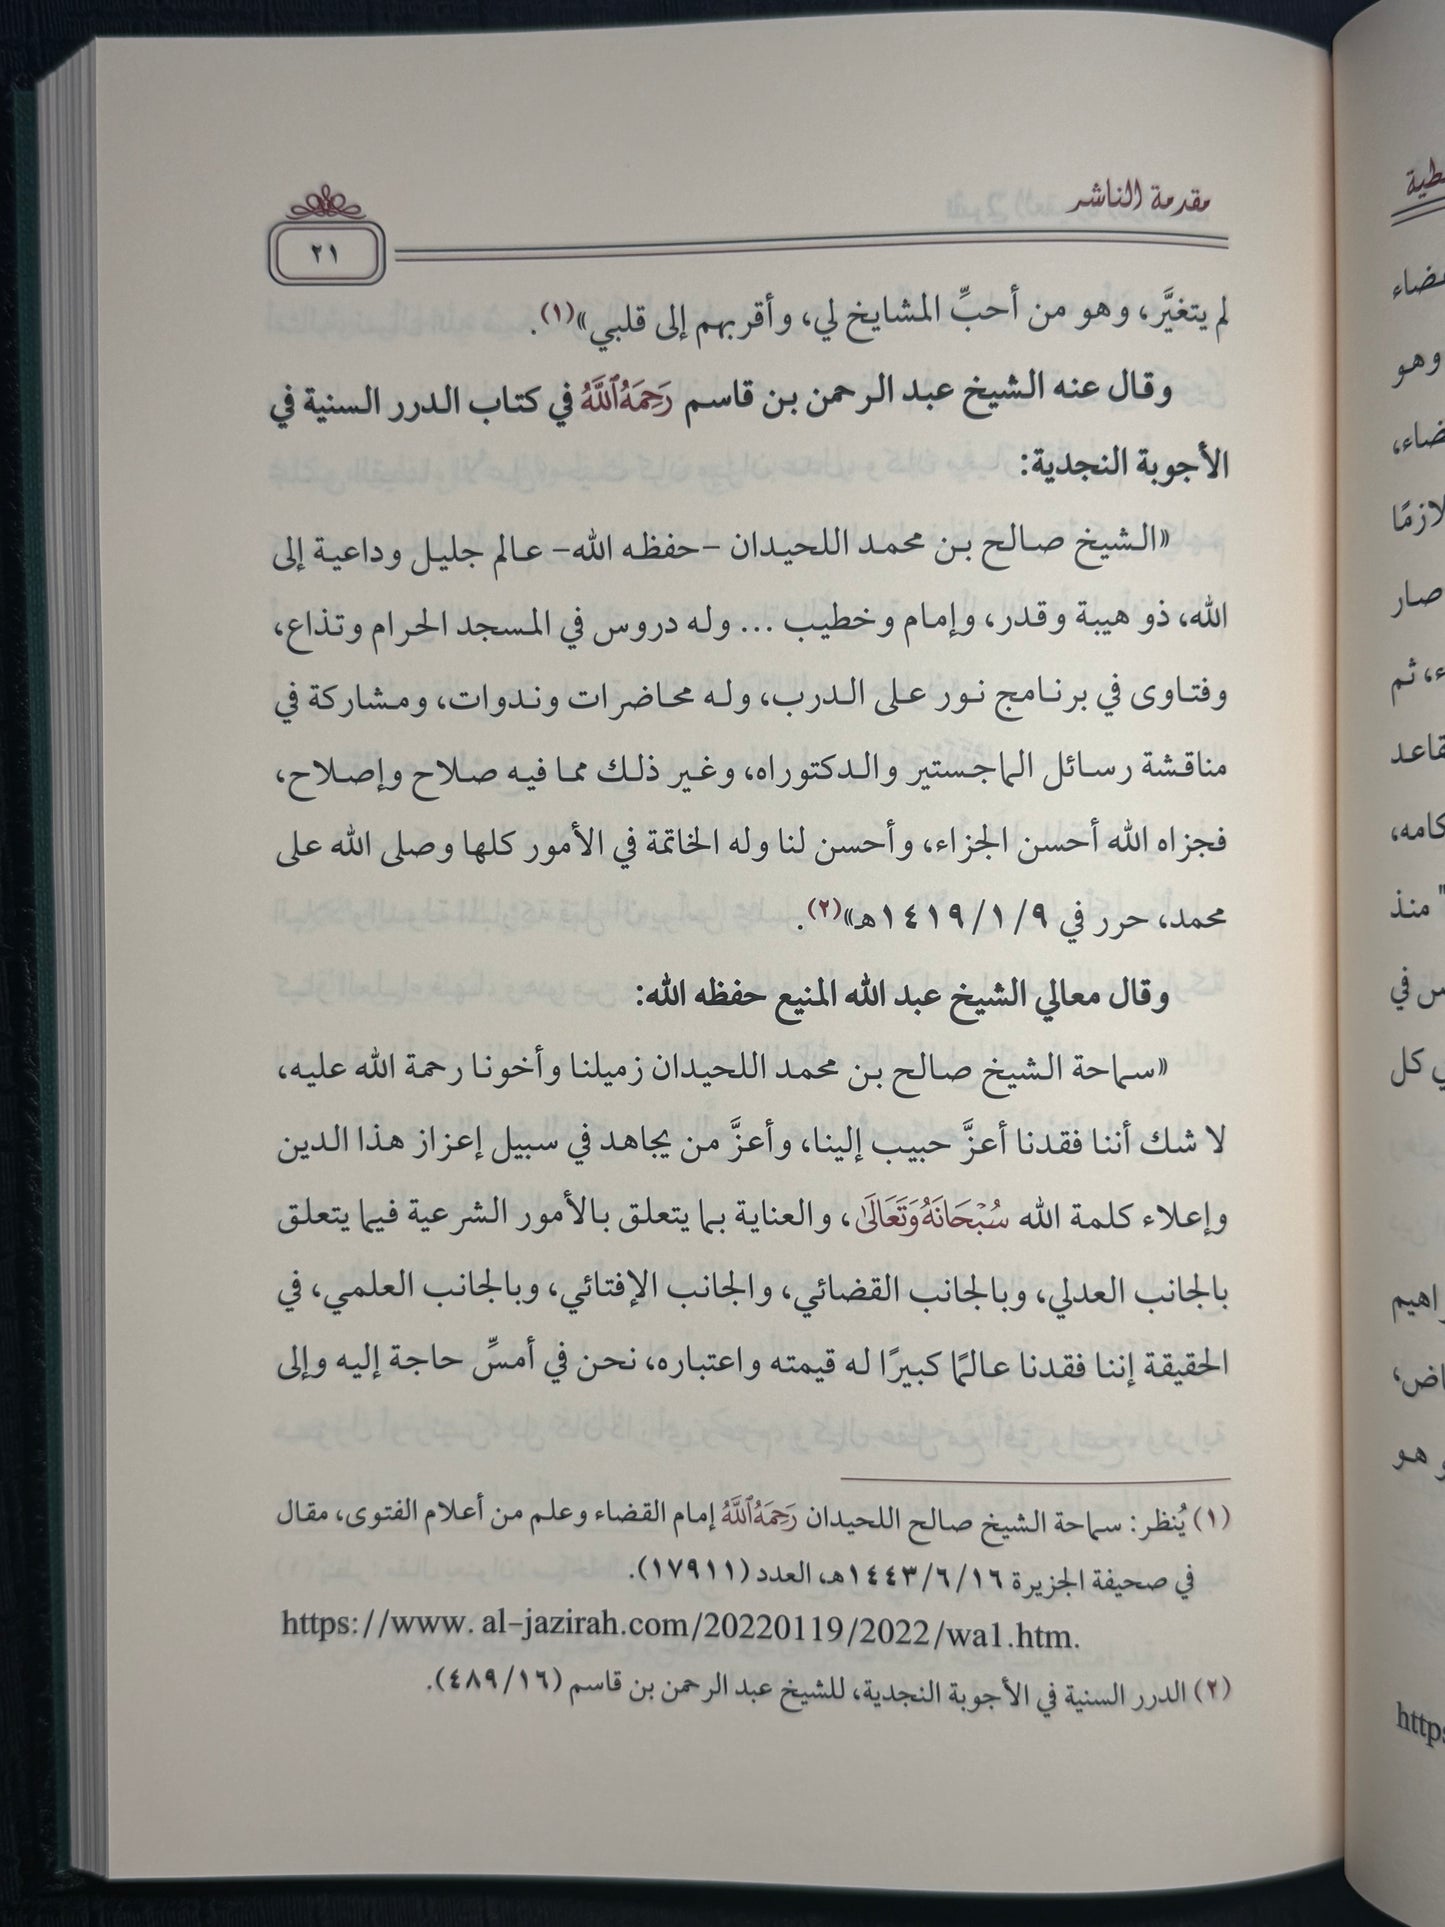 مقدمة الناشر
٢١
لم يتغيَّر، وهو من أحبِّ المشايخ لي، وأقربهم إلى قلبي»(١).
وقال عنه الشيخ عبد الرحمن بن قاسم رَحِمَهُ ٱللَّهُ في كتاب الدرر السنية في
الأجوبة النجدية:
«الشيخ صالح بن محمد اللحيدان –حفظه الله– عالم جليل وداعية إلى
الله، ذو هيبة وقدر، وإمام وخطيب ... وله دروس في المسجد الحرام وتذاع،
وفتاوى في برنامج نور على الدرب، وله محاضرات وندوات، ومشاركة في
مناقشة رسائل الماجستير والدكتوراه، وغير ذلك مما فيه صلاح وإصلاح،
فجزاه الله أحسن الجزاء، وأحسن لنا وله الخاتمة في الأمور كلها وصلى الله على
محمد، حرر في ١٤١٩/١/٩هـ»(٢).
وقال معالي الشيخ عبد الله المنيع حفظه الله:
«سماحة الشيخ صالح بن محمد اللحيدان زميلنا وأخونا رحمة الله عليه،
لا شك أننا فقدنا أعزَّ حبيب إلينا، وأعزَّ من يجاهد في سبيل إعزاز هذا الدين
وإعلاء كلمة الله سُبْحَانَهُ وَتَعَالَىٰ، والعناية بما يتعلق بالأمور الشرعية فيما يتعلق
بالجانب العدلي، وبالجانب القضائي، والجانب الإفتائي، وبالجانب العلمي، في
الحقيقة إننا فقدنا عالمًا كبيرًا له قيمته واعتباره، نحن في أمسِّ حاجة إليه وإلى
(١) يُنظر: سماحة الشيخ صالح اللحيدان رَحِمَهُ ٱللَّهُ إمام القضاء وعلم من أعلام الفتوى، مقال
في صحيفة الجزيرة ١٤٤٣/٦/١٦هـ، العدد (١٧٩١١).
https://www. al-jazirah.com/20220119/2022/wa1.htm.
(٢) الدرر السنية في الأجوبة النجدية، للشيخ عبد الرحمن بن قاسم (٤٨٩/١٦).
وهو
صار
ثم
كامه،
" منذ
في
كل
هو